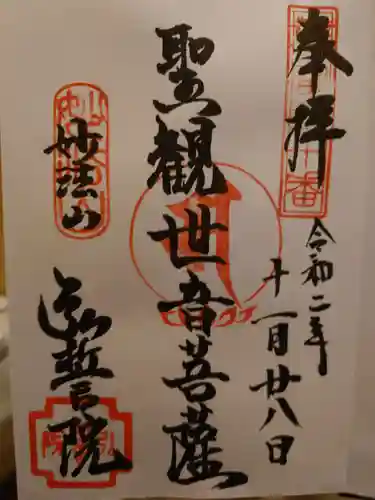 奉拝
令和二年
十一月廿八日
聖観世音菩薩
妙法山
弘誓院